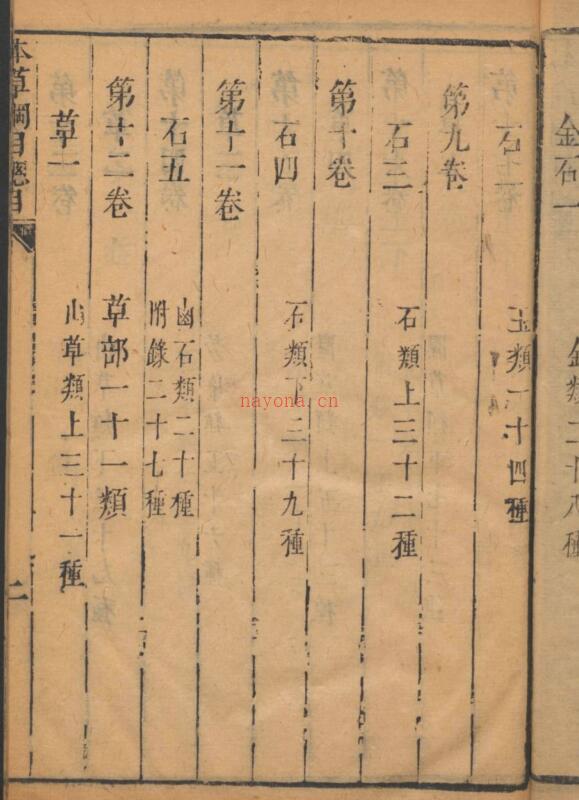 金石一 金類二十八種
石二 玉類一十四種
第九卷
石三 石類上三十二種
第十卷
石四 石類下三十九種
第十一卷
石五 鹵石類二十種
附錄二十七種
第十二卷 草部一十一類
草一 山草類上三十一種
本草綱目總目 二
nayona.cn